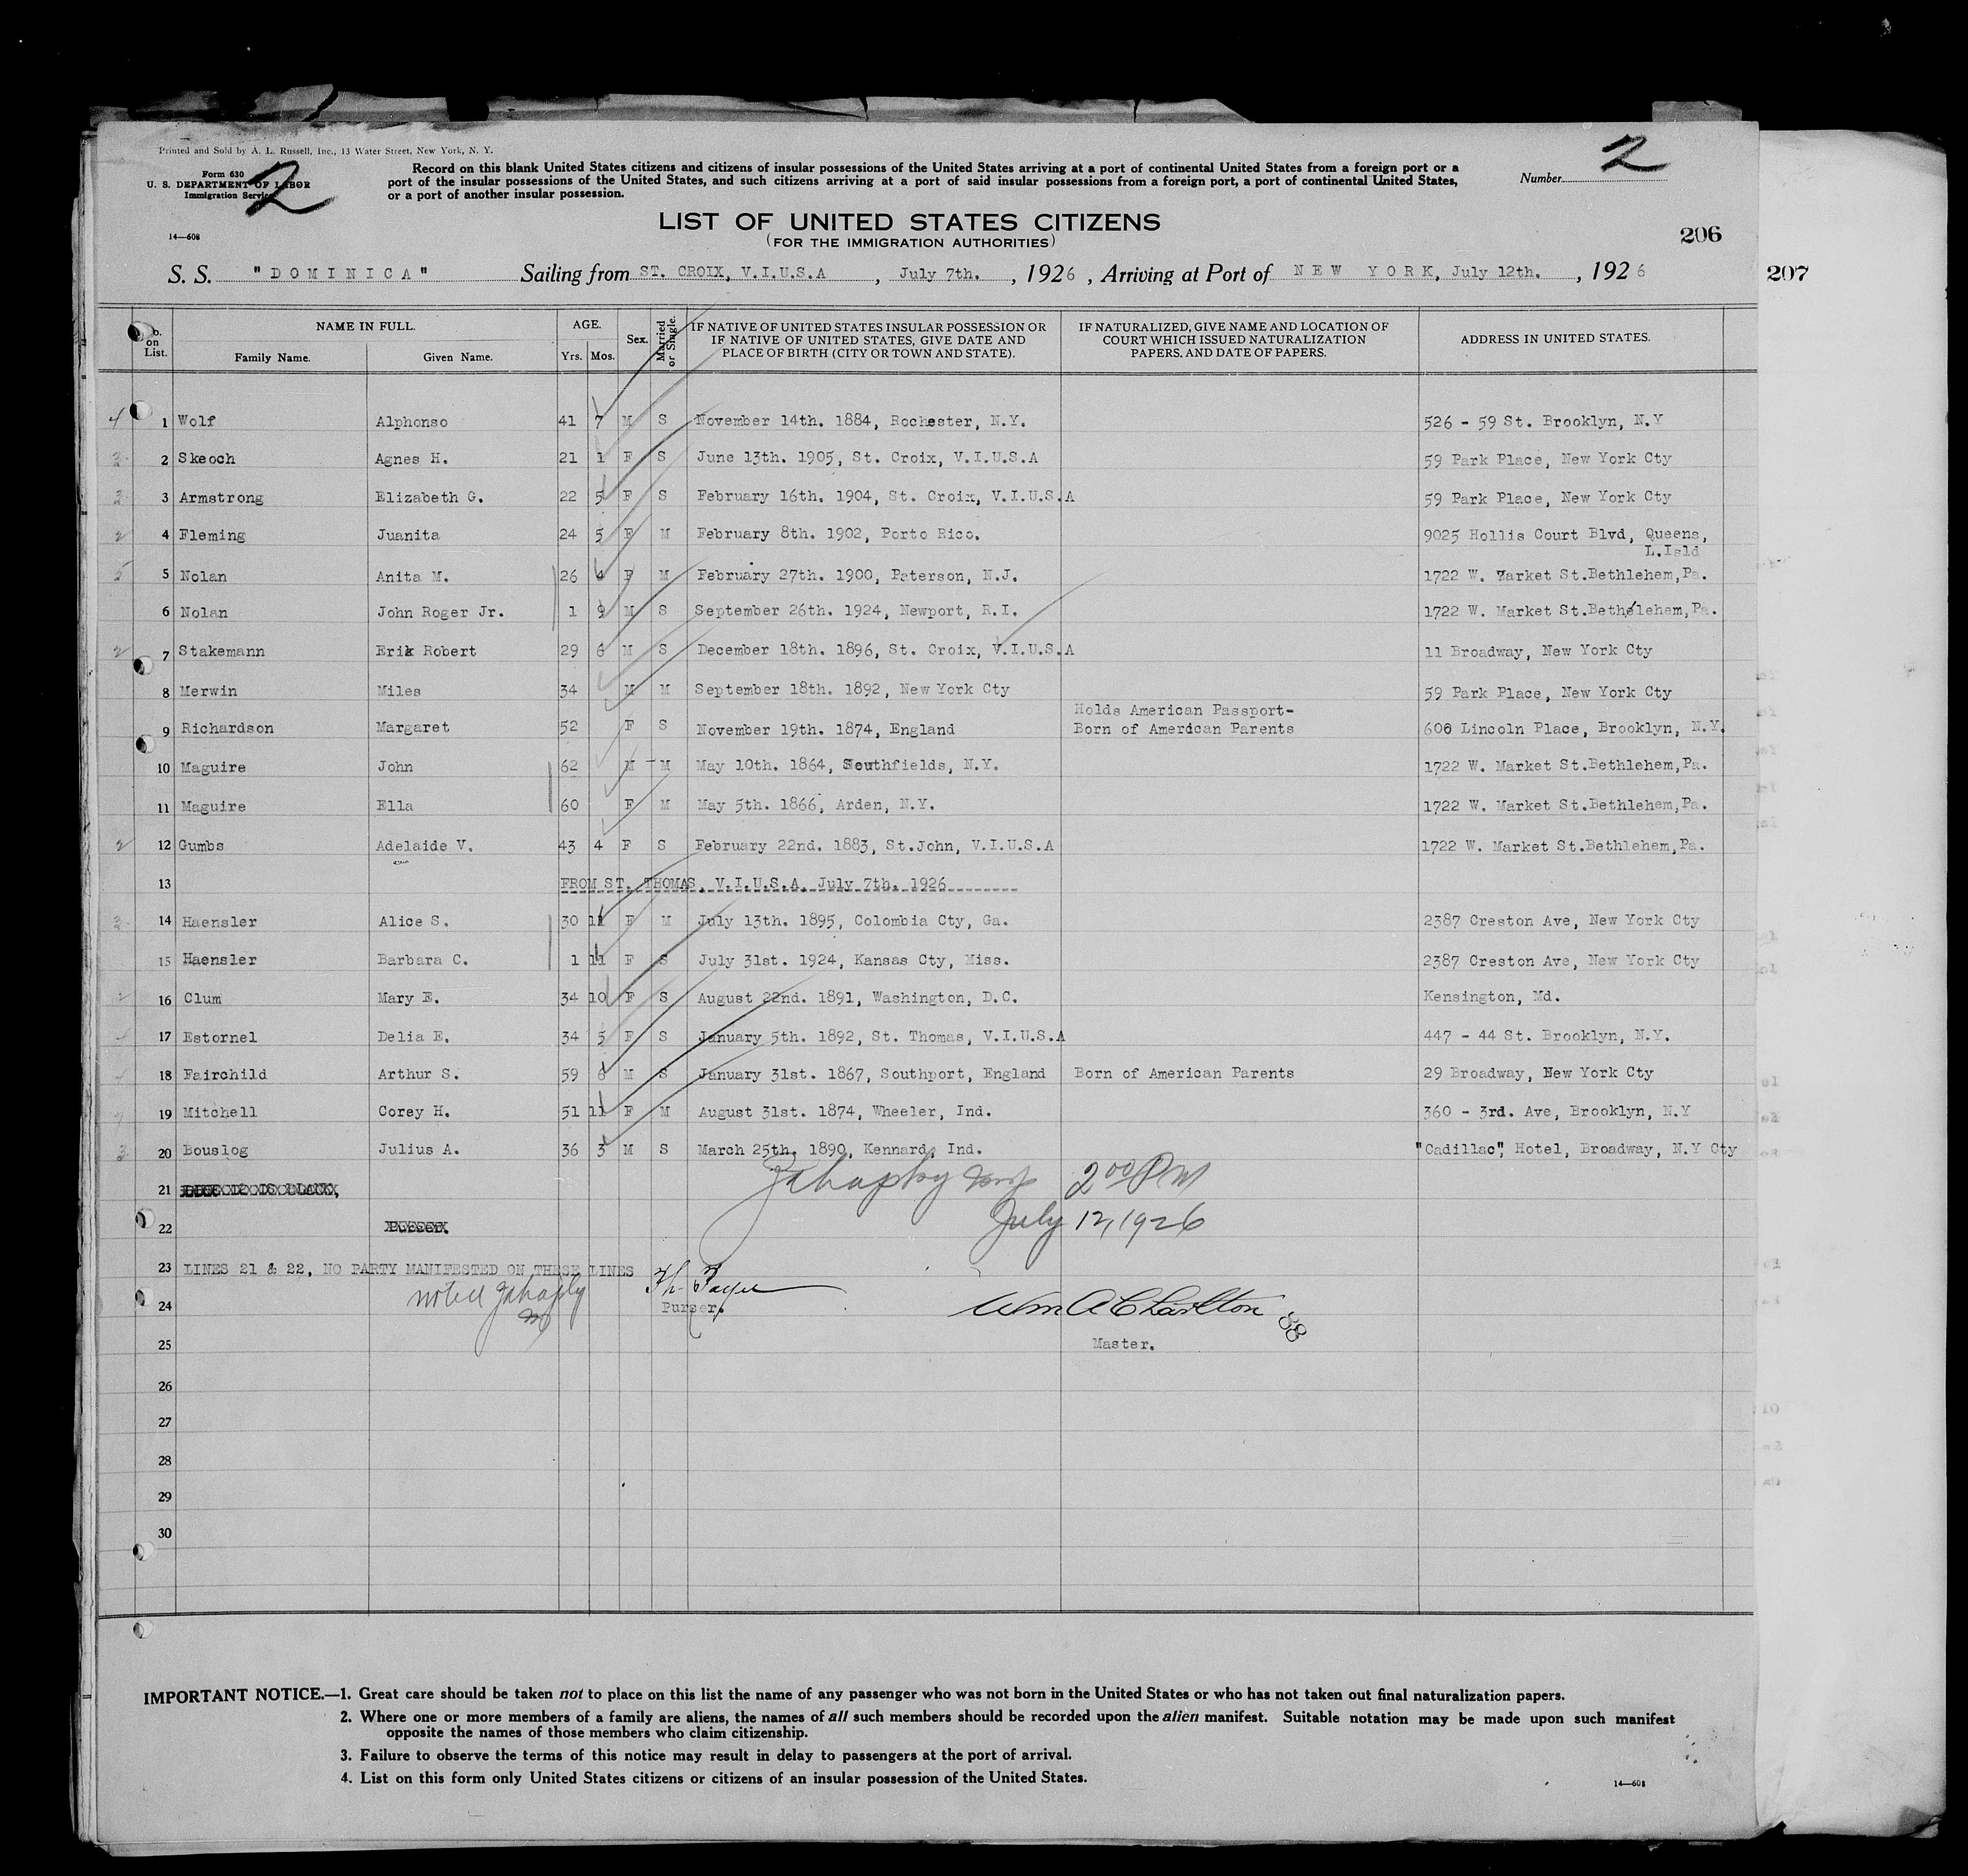 Printed and Sold by A. L. Russell, Inc., 13 Water Street, New York, N. Y.
Form 630
U. S. DEPARTMENT OF LABOR
Immigration Service
2
14—608
Record on this blank United States citizens and citizens of insular possessions of the United States arriving at a port of continental United States from a foreign port or a
port of the insular possessions of the United States, and such citizens arriving at a port of said insular possessions from a foreign port, a port of continental United States,
or a port of another insular possession.
Number 2
LIST OF UNITED STATES CITIZENS
(FOR THE IMMIGRATION AUTHORITIES)
206
207
S. S. "DOMINICA" Sailing from ST. CROIX, V.I.U.S.A , July 7th. , 1926 , Arriving at Port of NEW YORK, July 12th. , 1926
No. on List. NAME IN FULL. Family Name. Given Name. AGE. Yrs. Mos. Sex. Married or Single.
IF NATIVE OF UNITED STATES INSULAR POSSESSION OR IF NATIVE OF UNITED STATES, GIVE DATE AND PLACE OF BIRTH (CITY OR TOWN AND STATE).
IF NATURALIZED, GIVE NAME AND LOCATION OF COURT WHICH ISSUED NATURALIZATION PAPERS. AND DATE OF PAPERS.
ADDRESS IN UNITED STATES.
4 1 Wolf Alphonso 41 7 M S November 14th. 1884, Rochester, N.Y. 526 - 59 St. Brooklyn, N.Y
3 2 Skeoch Agnes H. 21 1 F S June 13th. 1905, St. Croix, V.I.U.S.A 59 Park Place, New York Cty
3 3 Armstrong Elizabeth G. 22 5 F S February 16th. 1904, St. Croix, V.I.U.S.A 59 Park Place, New York Cty
2 4 Fleming Juanita 24 5 F M February 8th. 1902, Porto Rico. 9025 Hollis Court Blvd, Queens,
L.Isld
5 5 Nolan Anita M. 26 4 F M February 27th. 1900, Paterson, N.J. 1722 W. Market St.Bethlehem,Pa.
6 Nolan John Roger Jr. 1 9 M S September 26th. 1924, Newport, R.I. 1722 W. Market St.Bethelehem,Pa.
2 7 Stakemann Erik Robert 29 6 M S December 18th. 1896, St. Croix, V.I.U.S.A 11 Broadway, New York Cty
8 Merwin Miles 34 M M September 18th. 1892, New York Cty 59 Park Place, New York Cty
Holds American Passport-
9 Richardson Margaret 52 F S November 19th. 1874, England Born of Amerdcan Parents 606 Lincoln Place, Brooklyn, N.Y.
10 Maguire John 62 M - M May 10th. 1864, Southfields, N.Y. 1722 W. Market St.Bethlehem,Pa.
11 Maguire Ella 60 F M May 5th. 1866, Arden, N.Y. 1722 W. Market St.Bethlehem,Pa.
2 12 Gumbs Adelaide V. 43 4 F S February 22nd. 1883, St.John, V.I.U.S.A 1722 W. Market St.Bethlehem,Pa.
13 FROM ST. THOMAS, V.I.U.S.A. July 7th. 1926
3 14 Haensler Alice S. 30 11 F M July 13th. 1895, Colombia Cty, Ga. 2387 Creston Ave, New York Cty
15 Haensler Barbara C. 1 11 F S July 31st. 1924, Kansas Cty, Miss. 2387 Creston Ave, New York Cty
16 Clum Mary E. 34 10 F S August 22nd. 1891, Washington, D.C. Kensington, Md.
17 Estornel Delia E. 34 5 F S January 5th. 1892, St. Thomas, V.I.U.S.A 447 - 44 St. Brooklyn, N.Y.
18 Fairchild Arthur S. 59 6 M S January 31st. 1867, Southport, England Born of American Parents 29 Broadway, New York Cty
19 Mitchell Corey H. 51 11 F M August 31st. 1874, Wheeler, Ind. 360 - 3rd. Ave, Brooklyn, N.Y
3 20 Bouslog Julius A. 36 3 M S March 25th. 1890, Kennard, Ind. "Cadillac", Hotel, Broadway, N.Y Cty
21 2 00 PM
22 Purser. July 12, 1926
23 LINES 21 & 22, NO PARTY MANIFESTED ON THESE LINES
noted
24 Purser. Wm A Charlton
25 Master.
26
27
28
29
30
IMPORTANT NOTICE.—1. Great care should be taken not to place on this list the name of any passenger who was not born in the United States or who has not taken out final naturalization papers.
2. Where one or more members of a family are aliens, the names of all such members should be recorded upon the alien manifest. Suitable notation may be made upon such manifest
opposite the names of those members who claim citizenship.
3. Failure to observe the terms of this notice may result in delay to passengers at the port of arrival.
4. List on this form only United States citizens or citizens of an insular possession of the United States.
14—608